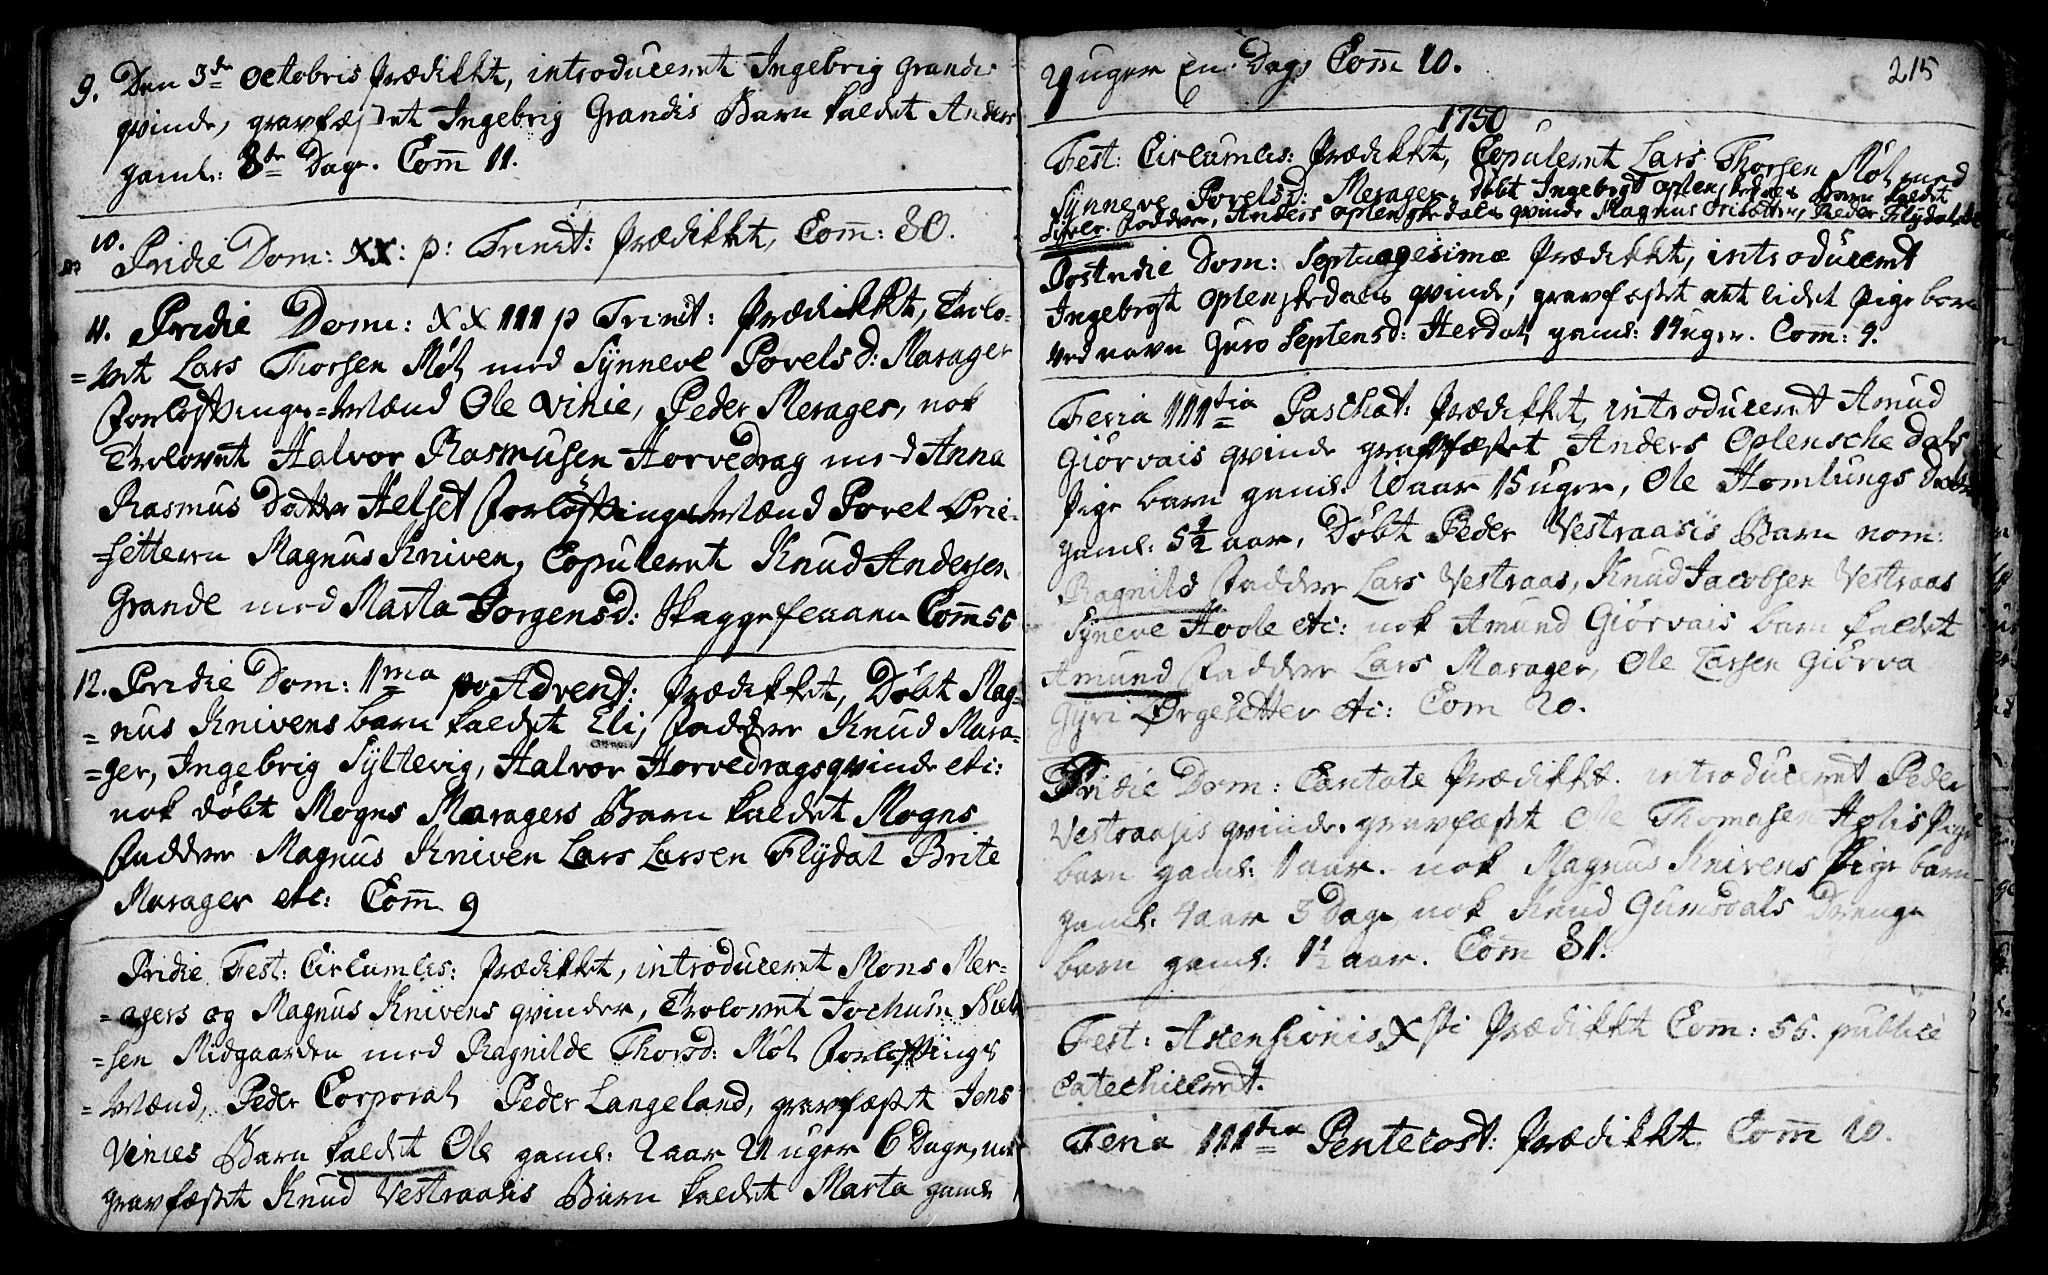 9. Den 3de Octobris Prædikket, introduceret Ingebrig Grandis
qvinde, gravfæstet Ingebrig Grandis Barn kaldet Anders
gaml: 8te Dage. Com̄ 11.
10. Pridie Dom: XX: p: Trinit: Prædikket, Com̄: 80.
11. Pridie Domi: XXIII p Trinit: Prædikket, Trolo-
=vet Lars Thorsen Møl med Synneve Povelsd: Marager
Forløftnings=Mænd Ole Vinie, Peder Merager, nok
Trolovet Halvor Rasmusen Horvedrag med Anna
Rasmus Datter Helset Forløftnings Mænd Povel Ørie-
=settern Magnus Kniven, Copuleret Knud Andersen
Grande med Marta Jorgensd: Skaggeflaaen Com̄ 56
12. Pridie Dom: 1ma po Advent: Prædikket, Døbt Mag-
=nus Knivens barn kaldet Eli, Faddere Knud Mara-
=ger, Ingebrig Syltevig, Halvor Horvedrags qvinde etc:
nok døbt Mogns Maragers Barn kaldet Mogns
Faddere Magnus Kniven Lars Larsen Flydal Brite
Marager etc: Com̄ 9
Pridie Fest: Circumcis: Prædikket, introduceret Mons Mer-
=agers og Magnus Knivens qvinder, Trolovet Jochum Niel
=sen Midgaarden med Ragnilde Thorsd: Møl Forløftnings
=Mænd, Peder Corporal Peder Langeland, gravfæstet Jens
Vinies Barn kaldet Ole gaml: 2 aar 21 uger 6 Dage, nok
gravfæstet Knud Vestraasis Barn kaldet Marta gaml
uger En: Dags Com̄ 10.
215
1750
Fest: Circumcis: Prædikket, Copuleret Lars Thorsen Møl med
Synneve Povelsd: Merager, døbt Ingebrigt Oplenskedals Barn kaldet
Faddere, Anders Oplenskedals qvinde Magnus Orisetter, Peder Flydal etc
Postridie Dom: Septuagesimæ Prædikket, introduceret
Ingebrigt Oplenskedals qvinde, gravfæstet et lidet Pige barn
ved navn Guro Septensd: Herdal gaml: 19 uger. Com̄: 9.
Feria IIItia Paschat: Prædikket, introduceret Amud
Giørvais qvinde gravfæstet Anders Oplensche Dals
Pige barn gaml: 10 aar 15 uger, Ole Homlungs Datter
gaml: 5½ aar, Døbt Peder Vestraasis Barn nom:
Ragnild Faddere Lars Vestraas, Knud Jacobsen Vestraas
Syneve Hoole etc: nok Amund Giørvais barn kaldet
Amund Faddere Lars Marager, Ole Larsen Giørva
Gyri Ørgesetter etc: Com 20.
Pridie Dom: Cantate Prædikket. introduceret Peder
Vestraasis qvinde. gravfæstet Ole Thomasen Holis Pige
barn gaml: 1 aar. nok Magnus Knivens Pige barn
gaml: 4 aar 3 Dage nok Knud Gumsdals Drenge
barn gaml: 1½ aar. Com 81.
Fest: Ascensionis Xsti Prædikket Com: 55. publicè
Catechiceret.
Feria IIItia Pentecost: Prædikket Com̄ 10.